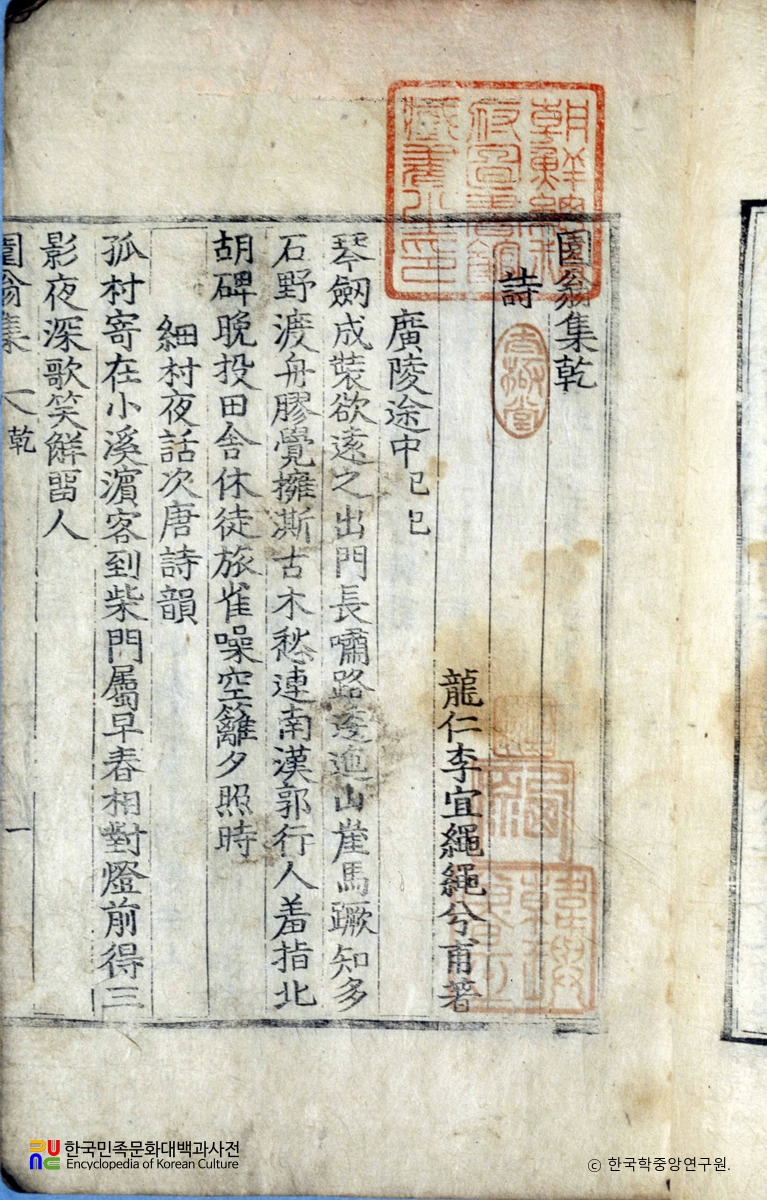 園翁集乾
詩
龍仁李宜繩繩兮甫著
廣陵途中己巳
琴劒成裝欲遠之出門長嘯路逶迤山崖馬蹶知多
石野渡舟膠覺擁澌古木愁連南漢郭行人羞指北
胡碑晩投田舍休徒旅雀噪空籬夕照時
細村夜話次唐詩韻
孤村寄在小溪濵客到柴門屬早春相對燈前得三
影夜深歌笑鮮畱人
園翁集 乾 一
朝鮮總督府圖書館藏書之印
한국민족문화대백과사전
Encyclopedia of Korean Culture
© 한국학중앙연구원.